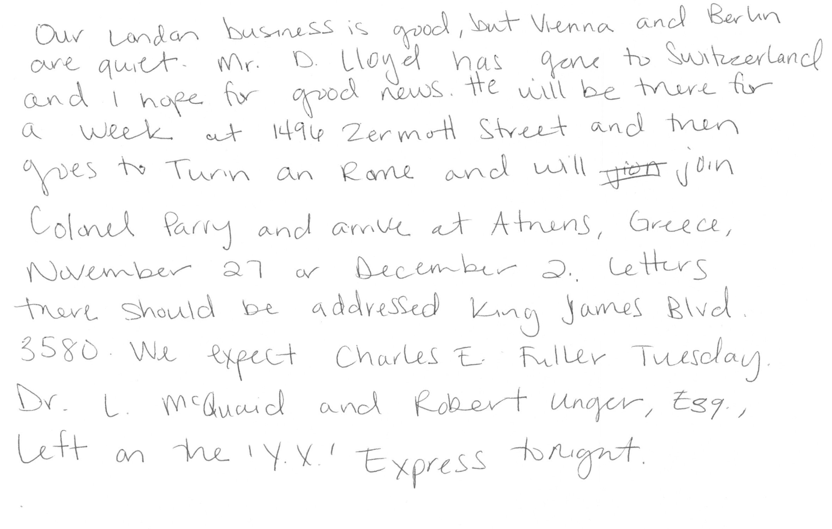 Our London business is good, but Vienna and Berlin
are quiet. Mr. D. Lloyd has gone to Switzerland
and I hope for good news. He will be there for
a week at 1496 Zermott Street and then
goes to Turin an Rome and will join
Colonel Parry and arrive at Athens, Greece,
November 27 or December 2. Letters
there should be addressed King James Blvd.
3580. We expect Charles E. Fuller Tuesday.
Dr. L. McQuaid and Robert Unger, Esq.,
left on the 'Y.X.' Express tonight.